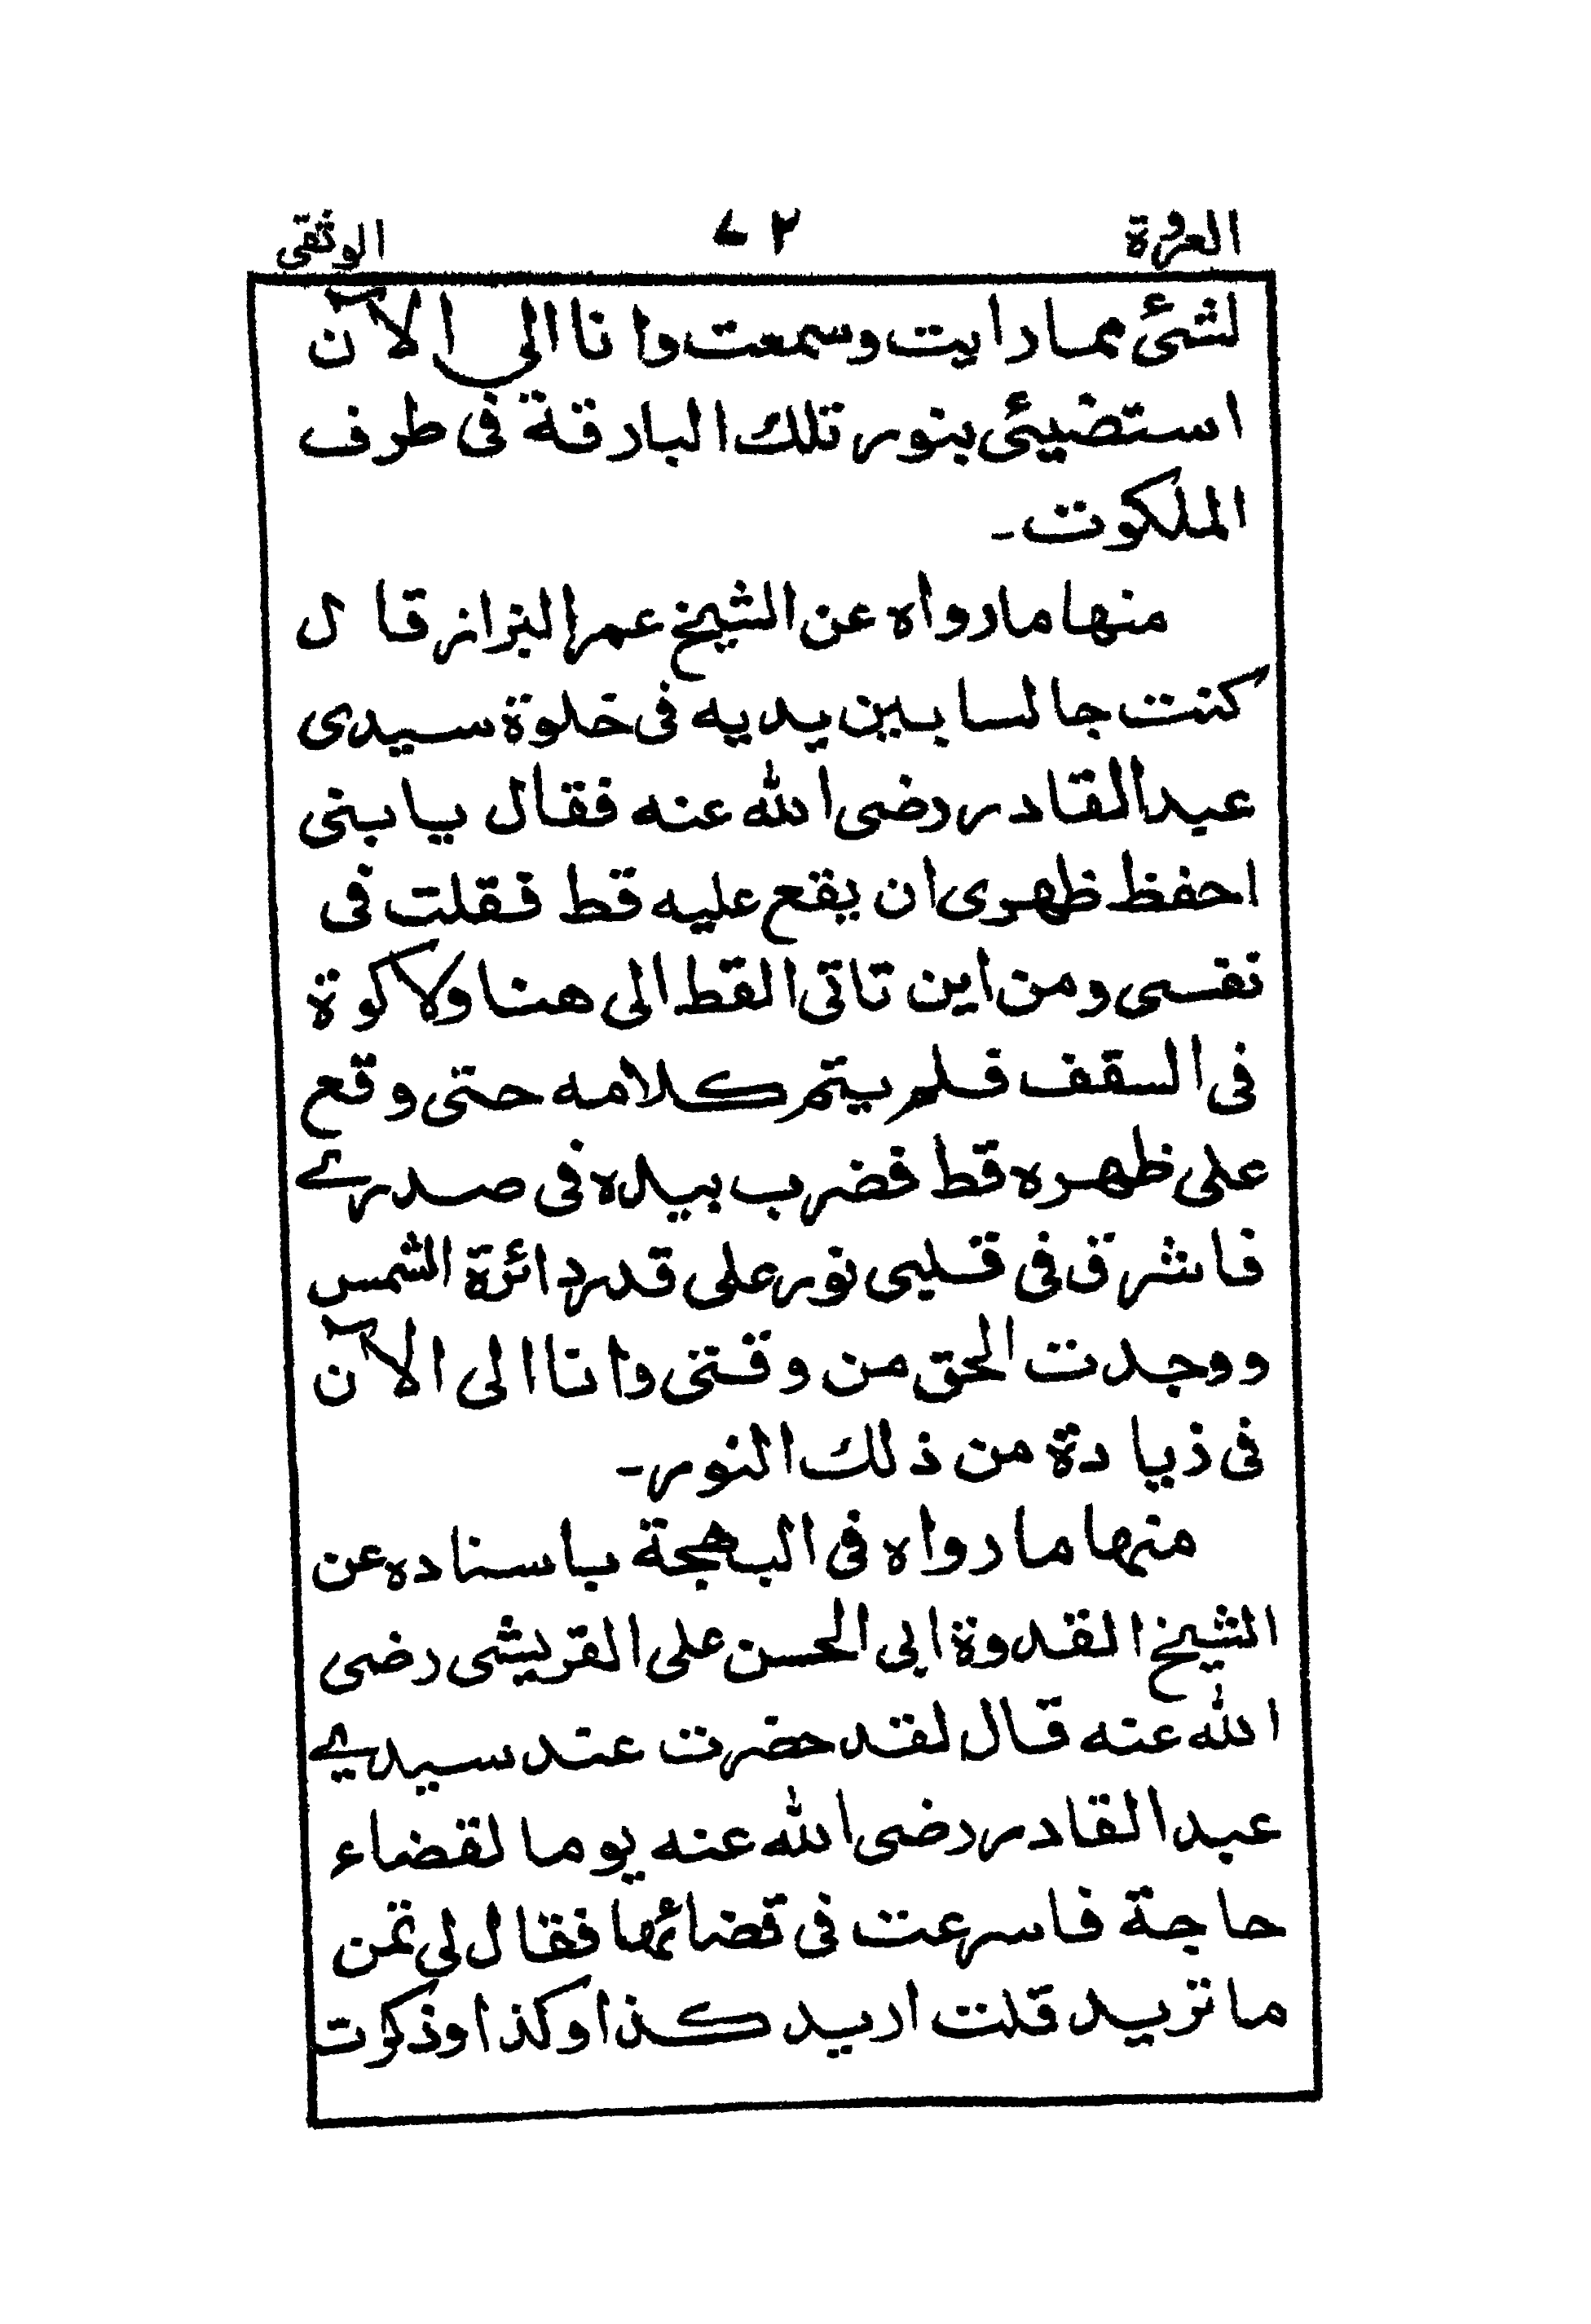 العروة ٧٢ الوثقى
لشئ مما رايت وسمعت وانا الى الآن
استضيئ بنور تلك البارقة فى طرف
الملكوت ۔
منها ما رواه عن الشيخ عمر البزاز قال
كنت جالسا بين يديه فى خلوة سيدى
عبد القادر رضى الله عنه فقال يا بنى
احفظ ظهرى ان يقع عليه قط فقلت فى
نفسى ومن اين تاتى القط الى هنا ولا كوة
فى السقف فلم يتم كلامه حتى وقع
على ظهره قط فضرب بيده فى صدرے
فاشرق فى قلبى نور على قدر دائرة الشمس
ووجدت الحق من وقتى وانا الى الآن
فى ذيادة من ذلك النور ۔
منها ما رواه فى البهجة باسناده عن
الشيخ القدوة ابى الحسن على القريشى رضى
الله عنه قال لقد حضرت عند سيدے
عبد القادر رضى الله عنه يوما لقضاء
حاجة فاسرعت فى قضائها فقال لى تمن
ما تريد قلت اريد كذا وكذا وذكرت